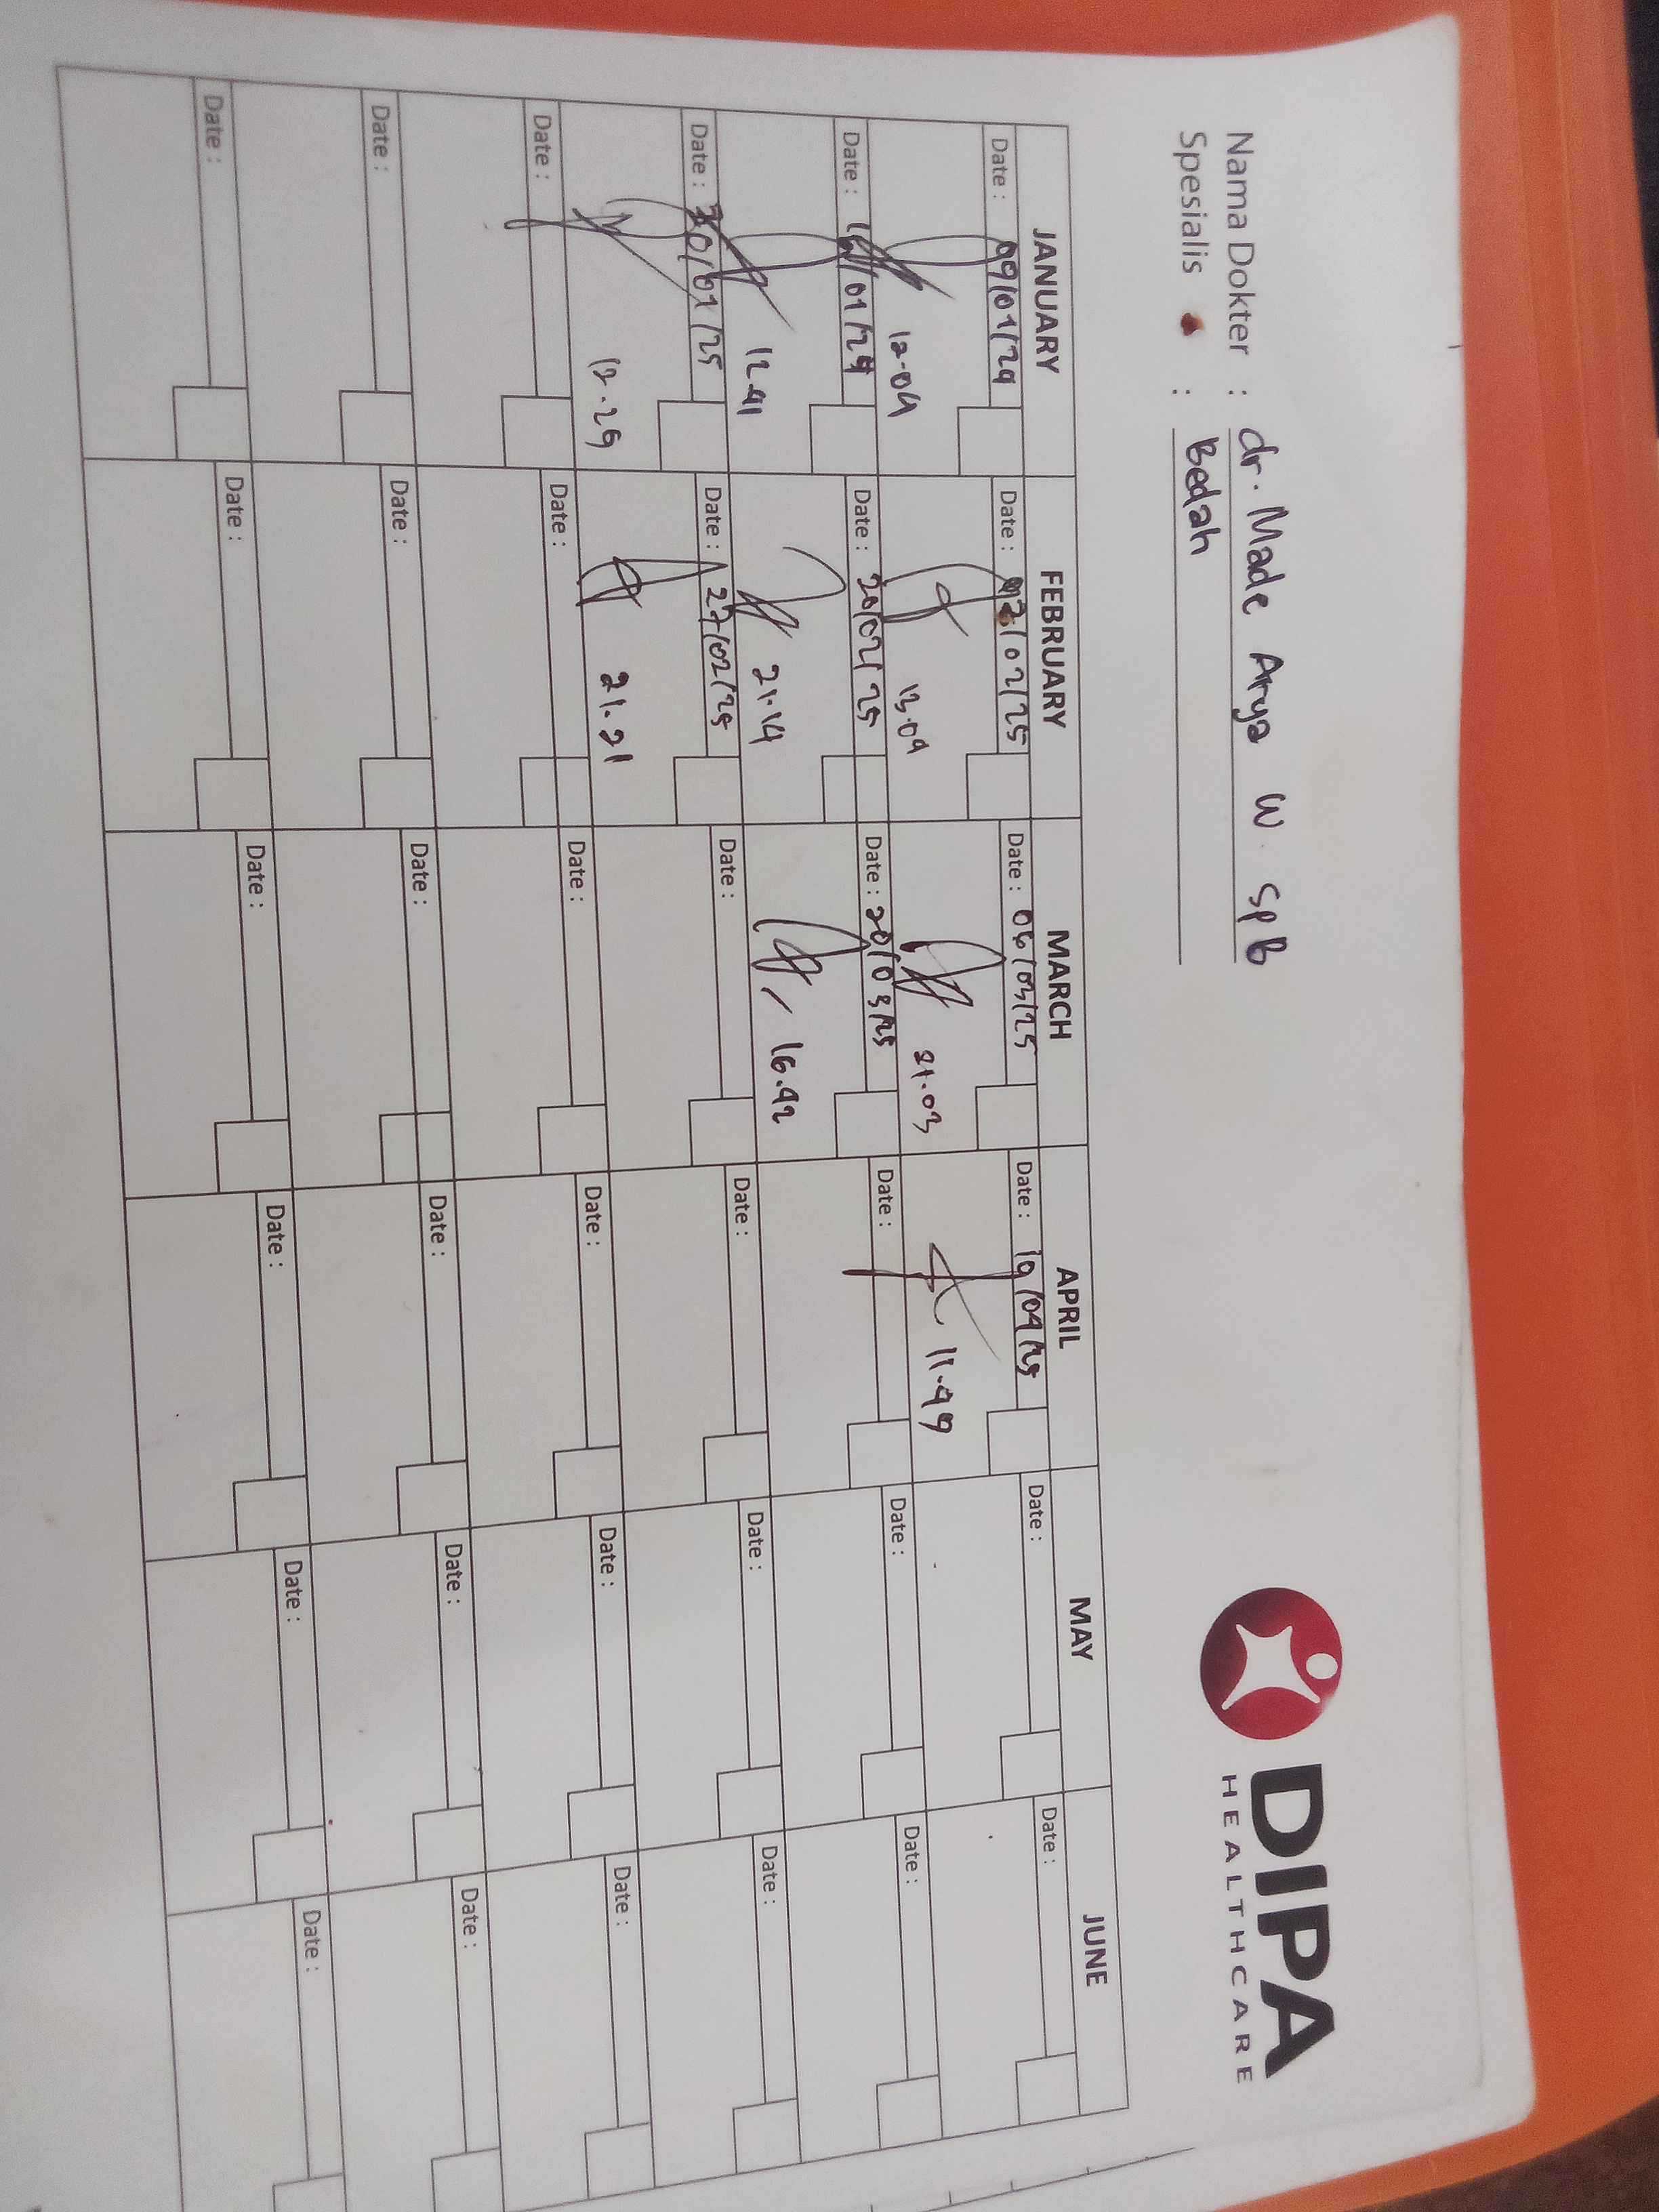 DIPA
HEALTHCARE
Nama Dokter : dr. Made Arya W. SpB
Spesialis : Bedah
JANUARY FEBRUARY MARCH APRIL MAY JUNE
Date : 09/01/24 Date : /02/25 Date : 06/03/25 Date : 10/04/25 Date : Date :
12.04 13.09 21.03 11.49
Date : 16/01/24 Date : 20/02/25 Date : 20/03/25 Date : Date : Date :
12.41 21.14 16.42
Date : 30/01/25 Date : 27/02/25 Date : Date : Date : Date :
12.25 21.21
Date : Date : Date : Date : Date : Date :
Date : Date : Date : Date : Date : Date :
Date : Date : Date : Date : Date : Date :